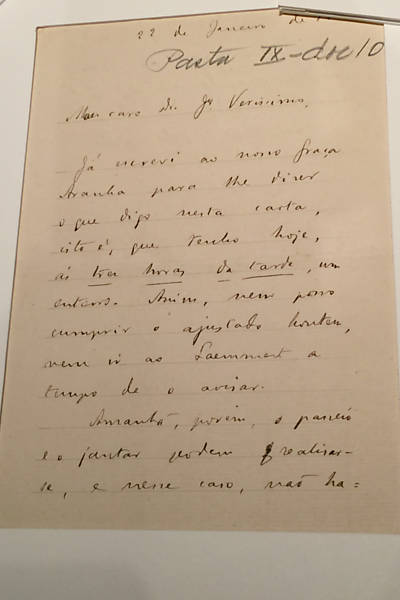 22 de Janeiro de
Pasta IX-doc 10
Meu caro Dr. J. Verissimo,
Já escrevi ao nosso Graça
Aranha para lhe dizer
o que digo nesta carta,
isto é, que tenho hoje,
ás tres horas da tarde, um
enterro. Assim, nem posso
cumprir o ajustado hontem,
nem ir ao Laemmert a
tempo de o avisar.
Amanhã, porém, o passeio
e o jantar podem realisar-
se, e nesse caso, não ha-